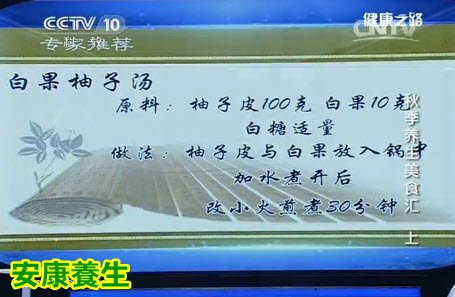 CCTV 10
健康之路
CNTV
专家推荐
白果柚子汤
原料：柚子皮100克 白果10克
白糖适量
做法：柚子皮与白果放入锅中
加水煮开后
改小火煎煮30分钟
秋季养生美食汇 上
安康養生